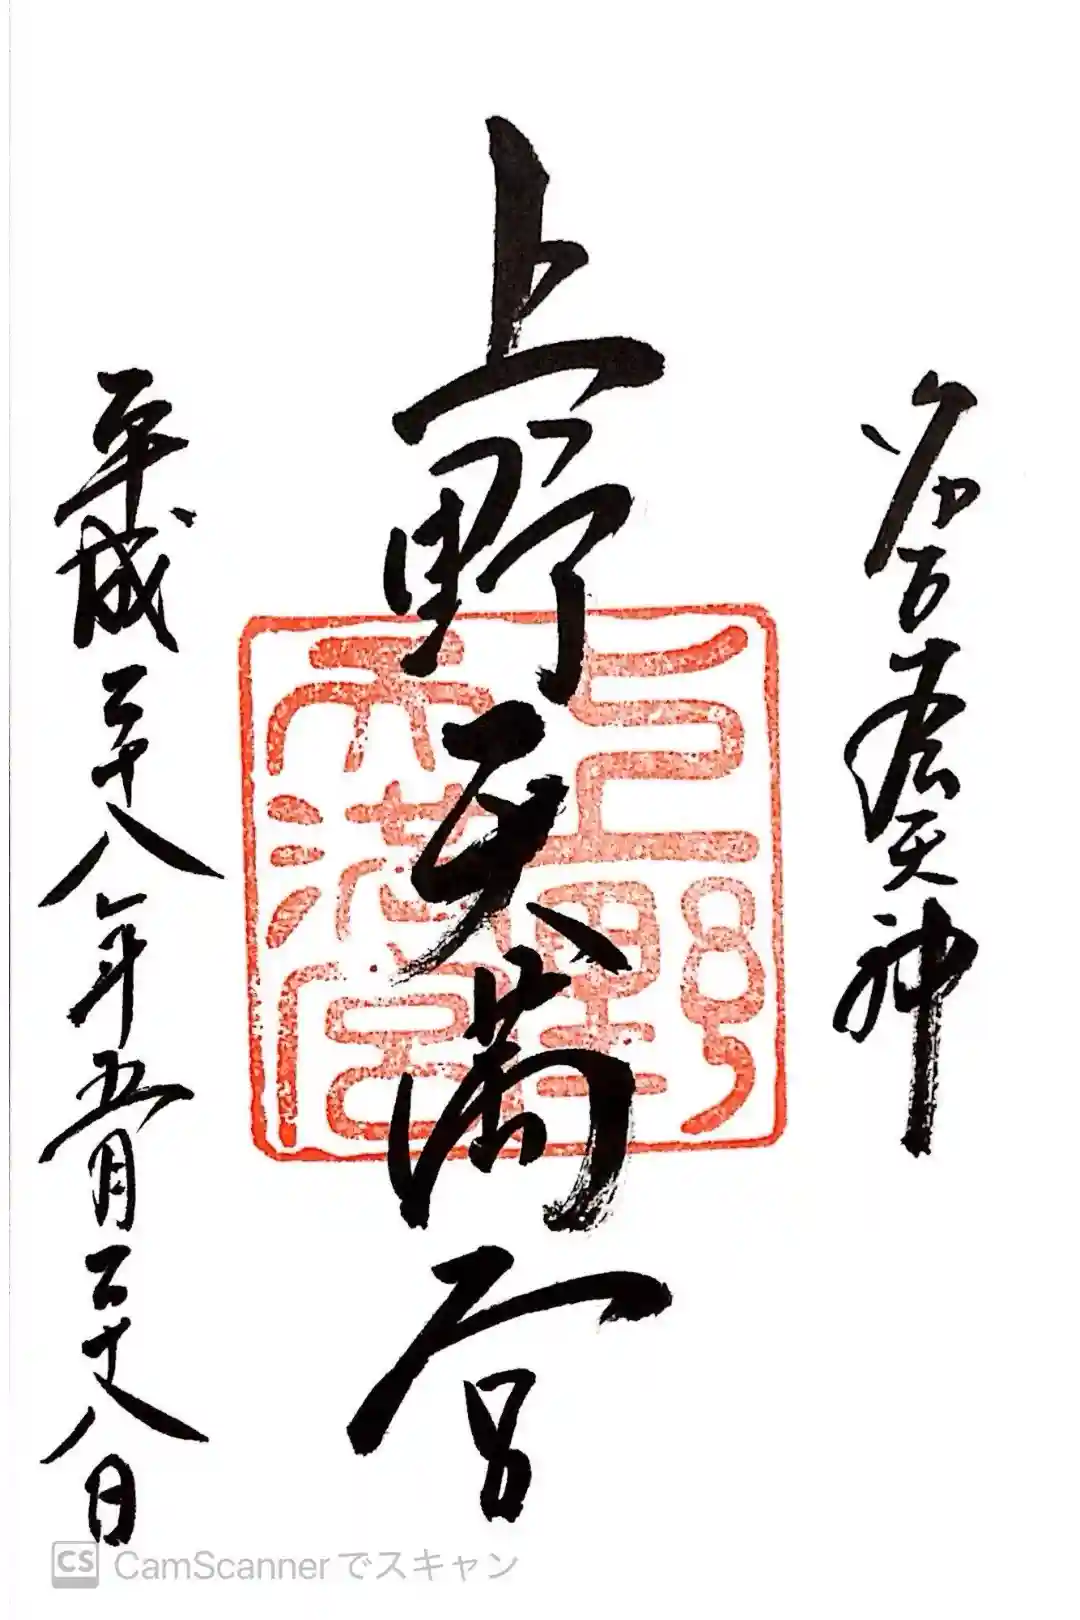 名古屋天神
上野天満宮
平成二十八年五月二十八日
上野
天満宮
CS CamScannerでスキャン